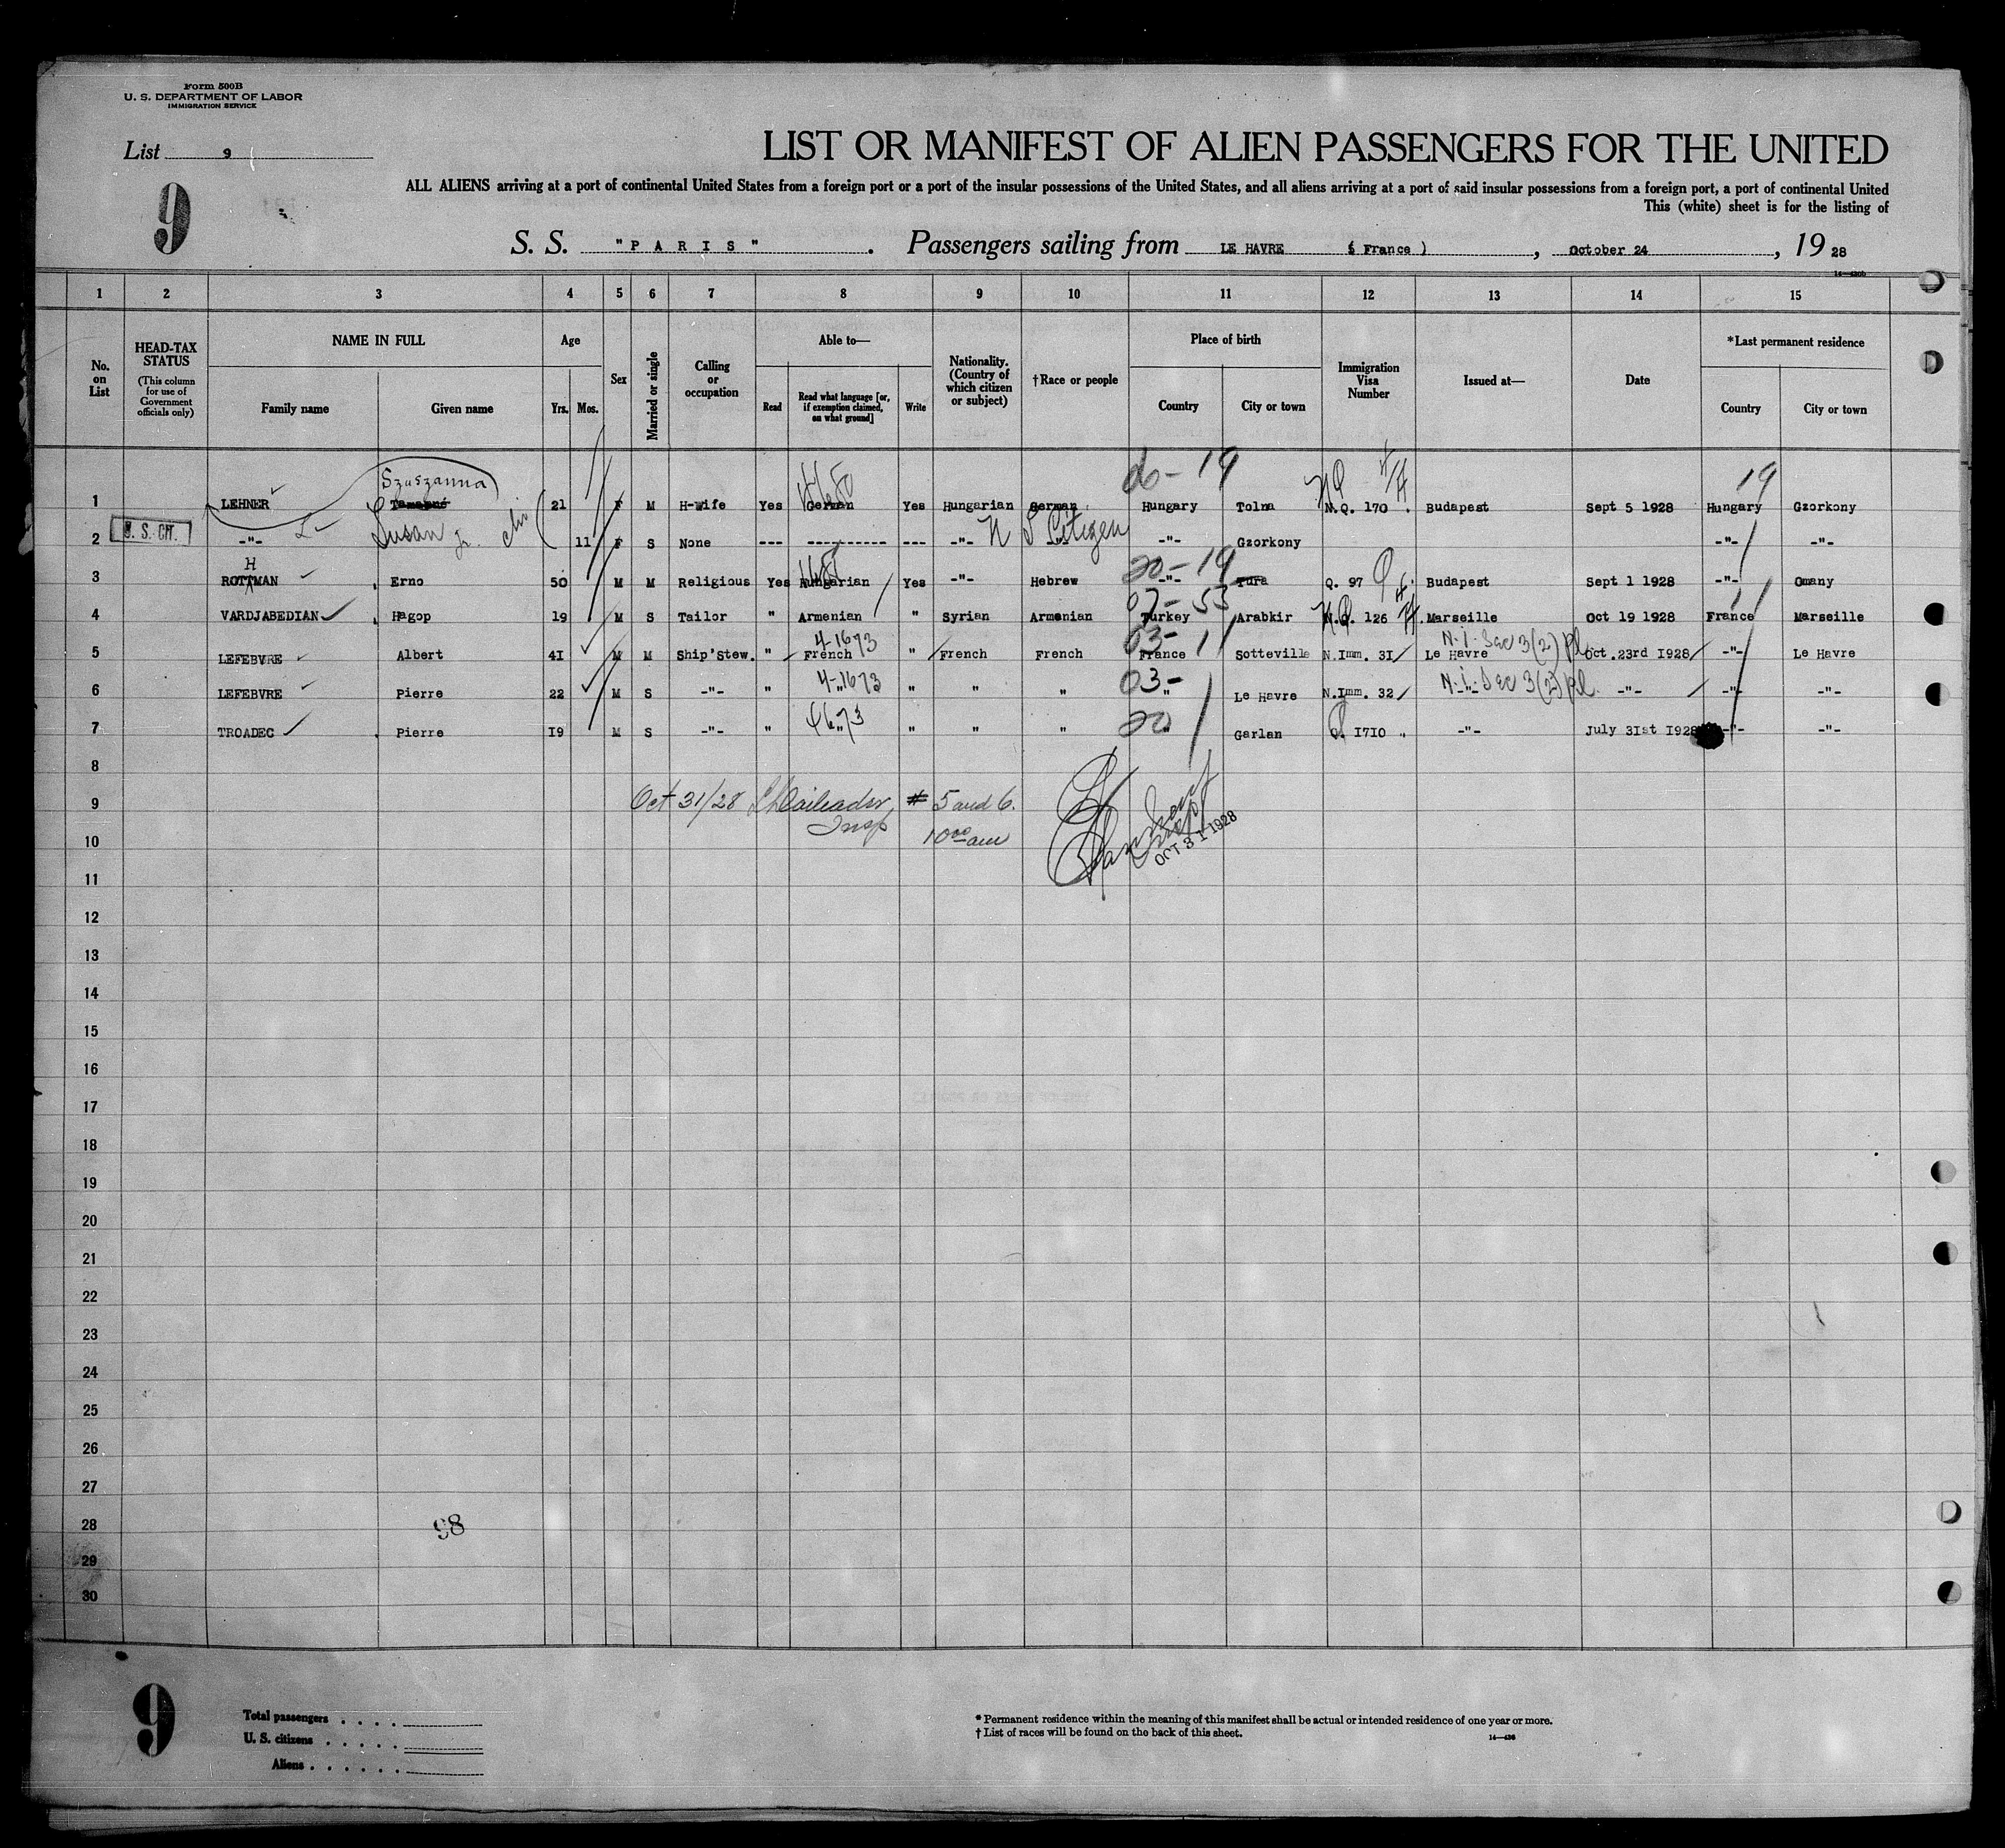 Form 500B
U. S. DEPARTMENT OF LABOR
IMMIGRATION SERVICE
List 9
LIST OR MANIFEST OF ALIEN PASSENGERS FOR THE UNITED
9
ALL ALIENS arriving at a port of continental United States from a foreign port or a port of the insular possessions of the United States, and all aliens arriving at a port of said insular possessions from a foreign port, a port of continental United
This (white) sheet is for the listing of
S. S. "PARIS". Passengers sailing from LE HAVRE ( France ), October 24, 19 28
1 2 3 4 5 6 7 8 9 10 11 12 13 14 15
No. on List
HEAD-TAX STATUS
(This column for use of Government officials only)
NAME IN FULL
Family name Given name
Age
Yrs. Mos.
Sex
Married or single
Calling or occupation
Able to—
Read Read what language [or, if exemption claimed, on what ground] Write
Nationality. (Country of which citizen or subject)
†Race or people
Place of birth
Country City or town
Immigration Visa Number
Issued at—
Date
*Last permanent residence
Country City or town
Szuszanna
06-19 19
1 LEHNER 21 F M H-Wife Yes German Yes Hungarian German Hungary Tolna N.Q. 170 Budapest Sept 5 1928 Hungary Gzorkony
U. S. CIT.
Susan jr.
U S Citizen
2 -"- 11 F S None --- ---------- --- -"- -"- Gzorkony -"- -"-
H
20-19
3 ROTTMAN Erno 50 M M Religious Yes Hungarian Yes -"- Hebrew -"- Tura Q. 97 Budapest Sept 1 1928 -"- Omany
07-53
4 VARDJABEDIAN Hagop 19 M S Tailor " Armenian " Syrian Armenian Turkey Arabkir N.Q. 126 Marseille Oct 19 1928 France Marseille
4-1673 03- N.I. Sec 3(2) pl.
5 LEFEBVRE Albert 41 M M Ship'Stew. " French " French French France Sotteville N.Imm. 31 Le Havre Oct.23rd 1928 -"- Le Havre
4-1673 03- N.I. Sec 3(2) pl.
6 LEFEBVRE Pierre 22 M S -"- " " " " " " Le Havre N.Imm. 32 -"- -"- -"- -"-
4673 20
7 TROADEC Pierre 19 M S -"- " " " " " " Garlan Q. 1710 -"- July 31st 1928 -"- -"-
8
9 Oct 31/28 # 5 and 6.
Insp
10 10 00 am
OCT 31 1928
11
12
13
14
15
16
17
18
19
20
21
22
23
24
25
26
27
28 98
29
30
9
Total passengers
U. S. citizens
Aliens
* Permanent residence within the meaning of this manifest shall be actual or intended residence of one year or more.
† List of races will be found on the back of this sheet.